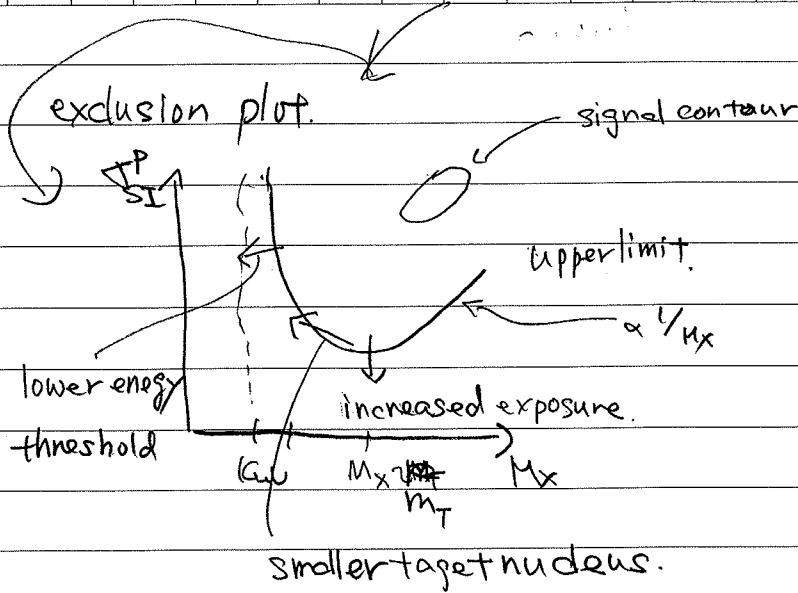 exclusion plot.
signal contour
σ P
SI
upper limit.
∝ 1/Mχ
lower enegy
threshold
increased exposure.
1GeV
Mχ ~
mT
Mχ
smaller taget nucleus.